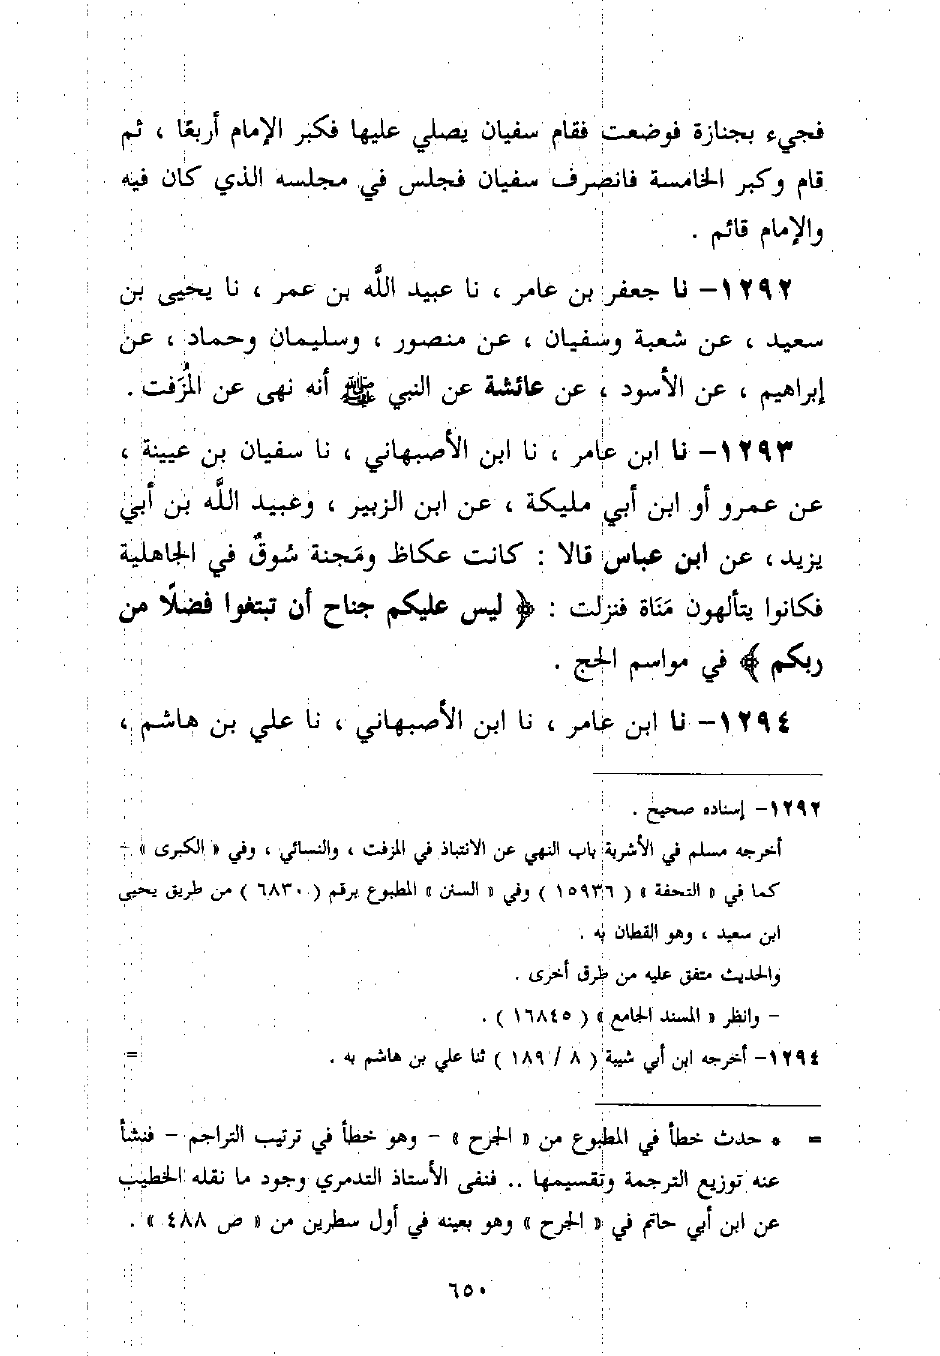 فجيء بجنازة فوضعت فقام سفيان يصلي عليها فكبر الإمام أربعًا ، ثم
قام وكبر الخامسة فانصرف سفيان فجلس في مجلسه الذي كان فيه
والإمام قائم .
١٢٩٢– نا جعفر بن عامر ، نا عبيد اللَّه بن عمر ، نا يحيى بن
سعيد ، عن شعبة وسفيان ، عن منصور ، وسليمان وحماد ، عن
إبراهيم ، عن الأسود ، عن عائشة عن النبي ﷺ أنه نهى عن المُزَفت .
١٢٩٣– نا ابن عامر ، نا ابن الأصبهاني ، نا سفيان بن عيينة ،
عن عمرو أو ابن أبي مليكة ، عن ابن الزبير ، وعبيد اللَّه بن أبي
يزيد ، عن ابن عباس قالا : كانت عكاظ ومَجنة سُوقٌ في الجاهلية
فكانوا يتألهون مَنَاة فنزلت : ﴿ ليس عليكم جناح أن تبتغوا فضلًا من
ربكم ﴾ في مواسم الحج .
١٢٩٤– نا ابن عامر ، نا ابن الأصبهاني ، نا علي بن هاشم ،
١٢٩٢– إسناده صحيح .
أخرجه مسلم في الأشربة باب النهي عن الانتباذ في المزفت ، والنسائي ، وفي « الكبرى » –
كما في « التحفة » ( ١٥٩٣٦ ) وفي « السنن » المطبوع برقم ( ٦٨٣٠ ) من طريق يحيى
ابن سعيد ، وهو القطان به .
والحديث متفق عليه من طرق أخرى .
– وانظر « المسند الجامع » ( ١٦٨٤٥ ) .
١٢٩٤– أخرجه ابن أبي شيبة ( ٨ / ١٨٩ ) ثنا علي بن هاشم به . =
= * حدث خطأ في المطبوع من « الجرح » – وهو خطأ في ترتيب التراجم – فنشأ
عنه توزيع الترجمة وتقسيمها .. فنفى الأستاذ التدمري وجود ما نقله الخطيب
عن ابن أبي حاتم في « الجرح » وهو بعينه في أول سطرين من « ص ٤٨٨ » .
٦٥٠